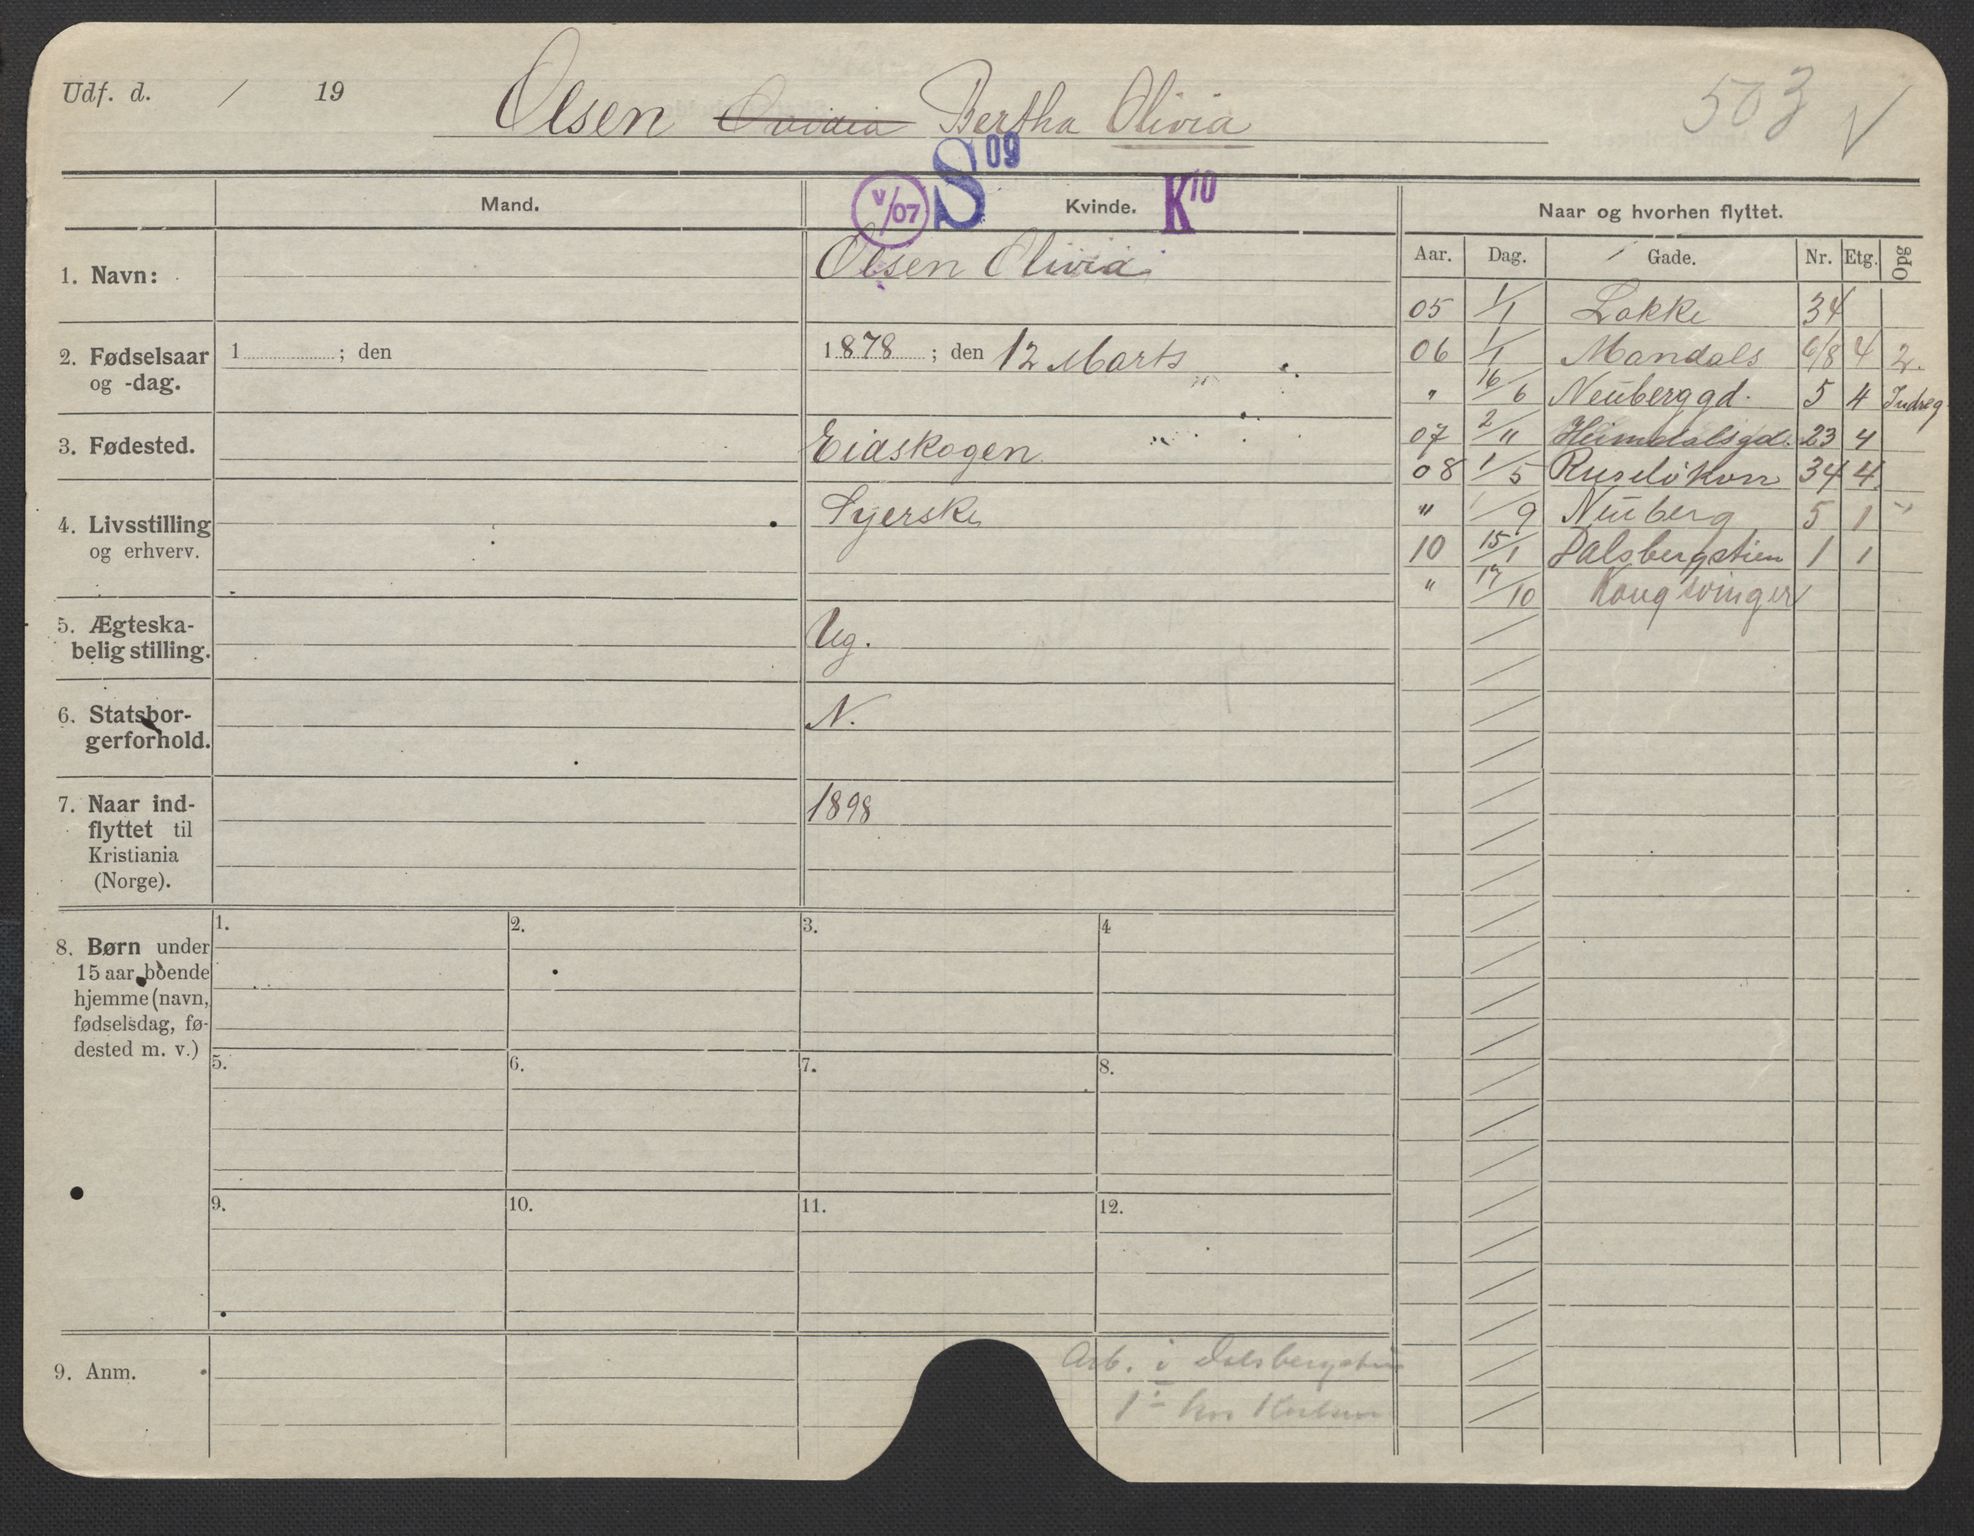 Udf. d. / 19
Olsen Ovidia Bertha Olivia
503 √
Mand.
V/07 S 09
Kvinde.
K 10
Naar og hvorhen flyttet.
Aar. Dag. Gade. Nr. Etg. Opg
1. Navn:
Olsen Olivia
2. Fødselsaar
og -dag.
1 ; den
1878 ; den 12 Marts
3. Fødested.
Eidskogen
4. Livsstilling
og erhverv.
Syerske
5. Ægteska-
belig stilling.
Ug.
6. Statsbor-
gerforhold.
N.
7. Naar ind-
flyttet til
Kristiania
(Norge).
1898
05 1/1 Løkke 34
06 1/1 Mandals 6/8 4 2.
" 16/6 Neuberggd. 5 4 Indreg
07 2/11 Heimdalsgd. 23 4
08 1/5 Ruseløkvn 34 4
" 1/9 Neuberg 5 1 "
10 15/1 Dalsbergstien 1 1
" 17/10 Kongsvinger
8. Børn under
15 aar boende
hjemme (navn,
fødselsdag, fø-
dested m. v.)
1. 2. 3. 4
5. 6. 7. 8.
9. 10. 11. 12.
9. Anm.
Arb. i Dalsbergstien
1 hos